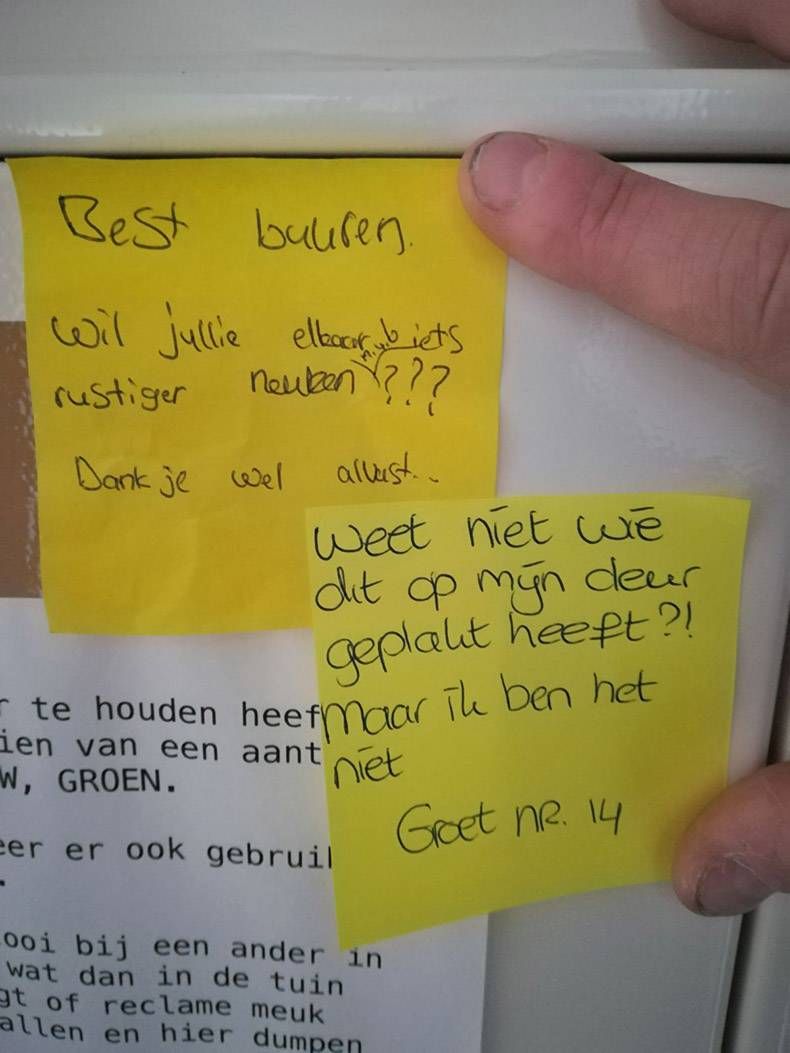 Best buuren.
Wil jullie elkaar, b iets
rustiger neuken ???
Dank je wel alvast..
Weet niet wie
dit op mijn deur
geplakt heeft?!
maar ik ben het
niet
Groet nr. 14
r te houden heef
ien van een aant
W, GROEN.
eer er ook gebruil
.
ooi bij een ander in
wat dan in de tuin
gt of reclame meuk
allen en hier dumpen